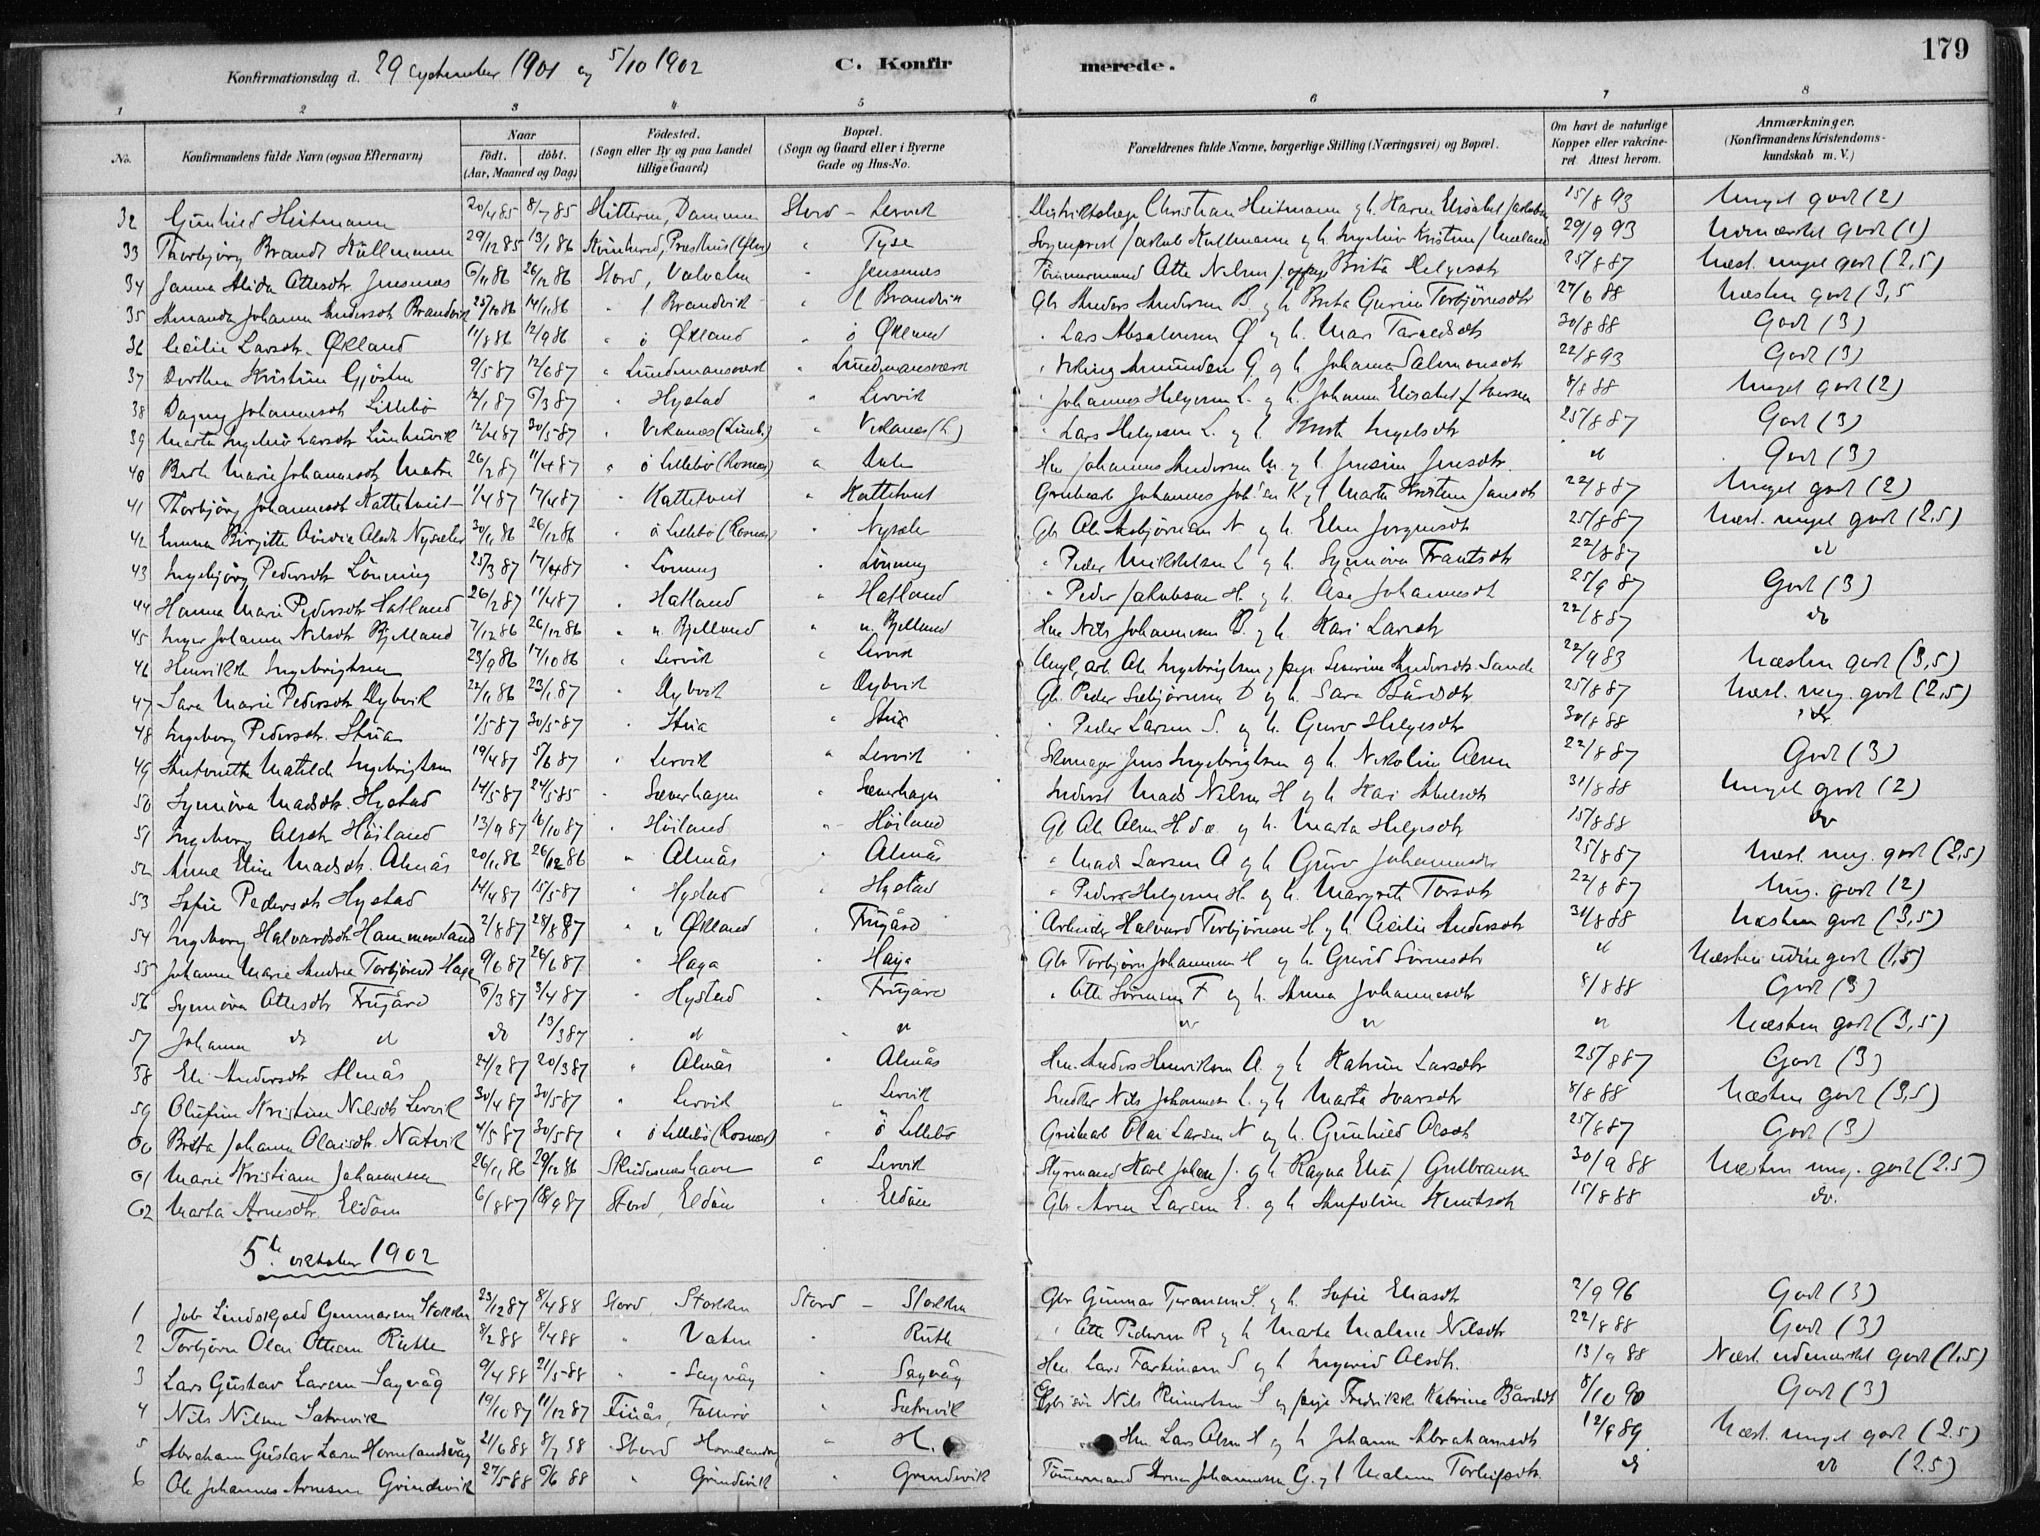 179
Konfirmationsdag d. 29 September 1901 og 5/10 1902 C. Konfir merede.
1 2 3 4 5 6 7 8
No. Konfirmandens fulde Navn (ogsaa Efternavn) Naar födt. döbt. (Aar, Maaned og Dag) Födested. (Sogn eller By og paa Landet tillige Gaard) Bopæl. (Sogn og Gaard eller i Byerne Gade og Hus-No. Forældrenes fulde Navne, borgerlige Stilling (Næringsvei) og Bopæl. Om havt de naturlige Kopper eller vakcineret. Attest herom. Anmærkninger. (Konfirmandens Kristendomskundskab m. V.)
32 Gunhild Heitmann 20/4 85 8/7 85 Hitteren, Dammen Stord - Lervik Distriktslæge Christian Heitmann og h. Karen Elisabet 15/8 93 Meget godt (2)
33 Thorbjörg Brandt Kullmann 29/12 85 13/1 86 Kvinherad, Præsthus " Tyse Sogneprest Jakob Kullmann og h. Ingeborg Kristine 29/9 93 Udmærket godt (1)
34 Janna Alida Ottesdtr Jensenes 6/11 86 26/12 86 Stord, Valvatn " Jensenes Tömmermand Otte Nilsen Brita Helgesdtr 25/8 87 Næst. meget godt (2,5)
35 Amanda Johanna Andersdtr Brandvik 25/10 86 14/11 86 " l Brandvik " l Brandvik Gbr Anders Andersen B. og h. Brita Gurine Torbjörnsdtr 27/6 88 Næsten godt (3,5
36 Cecilie Larsdtr. Økland 11/8 86 12/9 86 " ö Økland " ö Økland " Lars Absalonsen Ø og h. Mari Taraldsdtr 30/8 88 Godt (3)
37 Dorthea Kristine Gjösten 9/5 87 12/6 87 " Lundmansværk " Lundmansværk " Viking Amundsen G og h. Johanna Salmonsdtr 22/8 93 Godt (3)
38 Dagny Johannesdtr Lillebö 12/1 87 6/3 87 " Hystad " Lervik " Johannes Helgesen L. og h. Johanna Elisabet Iversen 8/8 88 Meget godt (2)
39 Marta Ingebor Larsdtr 12/4 87 30/5 87 " Vikanes " Vikanes (L) " Lars Helgesen L. og h. Brita Ingelsdtr 25/8 87 Godt (3)
40 Berta Marie Johannesdtr Matre 26/2 87 11/4 87 " ö Lillebö (Rosnæs) " Dale Hm Johannes Andersen M. og h. Jensine Jensdtr. " Godt (3)
41 Thorbjörg Johannesdtr Kattetveit 1/4 87 17/4 87 " Kattetveit " Kattetveit Grubearb Johannes Joh'sen K og h Marta Kristine Jansdtr 22/8 87 Meget godt (2)
42 Emma Birgitte Olsdtr Nysæter 30/11 86 26/12 86 " ö Lillebö (Rosnæs) " Nysæter Gbr Ole Asbjörnsen N og h. Elen Jorginesdtr 25/8 87 Næst. meget godt (2,5)
43 Ingebjörg Pedersdtr Lönning 25/3 87 17/4 87 " Lönning " Lönning " Peder Mikkelsen L og h. Synnöva Frantsdtr 22/8 87 "
44 Hanna Marie Pedersdtr Hatland 26/2 87 11/4 87 " Hatland " Hatland " Peder Jakobsen H. og h. Åsa Johannesdtr 25/9 87 Godt (3)
45 Inger Johanna Nilsdtr Bjelland 7/12 86 26/12 86 " n. Bjelland " n. Bjelland Hm Nils Johannesen B. og h. Kari Larsdtr 22/8 87 do
46 Henrikke Ingebrigtsen 23/9 86 17/10 86 " Lervik " Lervik Ungk. arb. Ole Ingebrigtsen og pige Severine Andersdtr. Sande 22/9 83 Næsten godt (3,5)
47 Sara Marie Pedersdtr Dybvik 22/11 86 23/1 87 " Dybvik " Dybvik Gb. Peder Sæbjörnsen D og h. Sara Bårdsdtr 25/8 87 Næst. meg. godt (2,5)
48 Ingeborg Pedersdtr. Stua 1/5 87 30/5 87 " Stua " Stua " Peder Larsen S. og h. Guro Helgesdtr 30/8 88 do.
49 Antonette Matilde Ingebrigtsen 19/4 87 5/6 87 " Lervik " Lervik Skomager Jens Ingebrigtsen og h. Nikoline Olsen 22/8 87 Godt (3)
50 Synnöva Madsdtr. Hystad 14/5 87 24/5 85 " Sæverhagen " Sæverhagen Inderst Mads Nilsen H og h Kari Abelsdtr 31/8 88 Meget godt (2)
51 Ingeborg Olsdtr Höiland 13/9 87 16/10 87 " Höiland " Höiland Gb Ole Olsen H d.æ. og h. Marta Helgesdtr 15/8 88 do
52 Anna Elina Madsdtr. Almås 20/11 86 26/12 86 " Almås " Almås " Mads Larsen A og h Guro Johannesdtr 25/8 87 Næst. meg. godt (2,5)
53 Sofie Pedersdtr Hystad 14/4 87 15/5 87 " Hystad " Hystad " Peder Helgesen H. og h. Margrete Torsdtr 22/8 87 Meg. godt (2)
54 Ingeborg Halvardsdtr Hammersland 2/8 87 28/8 87 " n Økland " Frugård Arbeider Halvard Torbjörnsen H. og h. Cecilie Andersdtr 31/8 88 Næsten godt (3,5)
55 Johanna Marie Andrea Torbjörnsd Haga 9/6 87 26/6 87 " Haga " Haga Gbr Torbjörn Johannesen H og h. Gurid Sörensdtr " Næsten udm. godt (1,5)
56 Synnöva Ottesdtr Frugård 6/3 87 3/4 87 " Hystad " Frugård " Otte Sörensen F og h. Anna Johannesdtr 8/8 88 Godt (3)
57 Johanna do " do 13/3 87 " " " " " " " Næsten godt (3,5)
58 Eli Andersdtr Almås 24/2 87 20/3 87 " Almås " Almås Hm. Anders Henriksen A. og h. Katrine Larsdtr 25/8 87 Godt (3)
59 Olufine Kristine Nilsdtr Lervik 30/4 87 30/5 87 " Lervik " Lervik Snedker Nils Johannesen L. og h. Marta Ivarsdtr 8/8 88 Næsten godt (3,5)
60 Brita Johanna Olaisdtr. Natvik 4/5 87 30/5 87 " ö Lillebö (Rosnæs) " ö Lillebö Grubearb Olai Larsen N og h. Gunhild Olsdtr 25/8 87 Godt (3)
61 Marie Kristiane Johannesen 26/11 86 29/12 86 Skudesneshavn " Lervik Styrmand Karl Johan J. og h Ragna Elisa f Gulbransen 30/9 88 Næsten meg. godt (2.5)
62 Marta Arnesdtr. Eldöen 6/8 87 18/9 87 Stord, Eldöen " Eldöen Gbr Arne Larsen E. og h Anfoline Knutsdtr 15/8 88 do.
5te oktober 1902
1 Job Lindskjold Gunnarsen Stokken 23/12 87 8/4 88 Stord, Stokken Stord - Stokken Gbr Gunnar Tjeransen S. og h. Sofie Eliasdtr 2/9 96 Godt (3)
2 Torbjörn Olai Ottesen Rutle 8/2 88 8/4 88 " Vatne " Rutle " Otte Pedersen R og h Marta Malene Nilsdtr 22/8 88 Godt (3)
3 Lars Gustav Larsen Sagvåg 9/4 88 21/5 88 " Sagvåg " Sagvåg Hm Lars Fartinsen S og h Ingerid Olsdtr. 13/9 88 Næst. udmærket godt (1,5)
4 Nils Nilsen Sætrevik 19/10 87 11/12 87 Finås, Folkerö " Sætrevik Gbr sön Nils Reinertsen S og pige Fredrikke Katrine Bårdsdt 8/10 90 Godt (3)
5 Abraham Gustav Larsen Hornelandsvåg 21/6 88 8/7 88 Stord Hornelandsv " H. Hm Lars Olsen H og h Johanna Abrahamsdtr 12/9 89 Næst. meget godt (2.5)
6 Ole Johannes Arnesen Grindevik 27/5 88 6/6 88 " Grindevik " Grindevik Tömmermand Arne Johannesen G. og h Malena Torleifsdtr. do do (2.5)